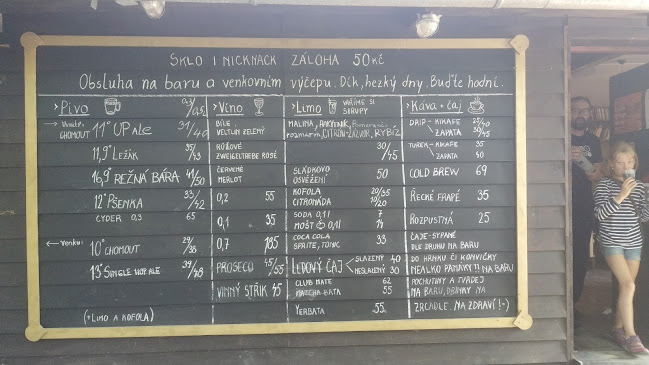 SKLO I NICKNACK ZÁLOHA 50KČ
Obsluha na baru a venkovním výčepu. Dík, hezký dny. Buďte hodní.
> Pivo 0,3/0,5
CHOMOUT 11° UPALE 31/40
11,9° LEŽÁK 35/43
16,9° REŽNÁ BÁRA 41/50
12° PŠENKA 33/42
CYDER 0,3 65
← Venku:
10° CHOMOUT 29/35
13° SINGLE HOP ALE 39/48
(+ LIMO A KOFOLA)
> Víno
BÍLÉ:
VELTLÍN ZELENÝ
RŮŽOVÉ
ZWEIGELTREBE ROSÉ
ČERVENÉ
MERLOT
0,2 55
0,1 35
0,7 185
PROSECO 45/55
VINNÝ STŘIK 45
> Limo VAŘÍME SI SIRUPY
MALINA, RAKYTNÍK,
rozmarýn, CITRÓN-ZÁZVOR, RYBÍZ
30/45
SLÁDKOVO
OSVĚŽENÍ 50
KOFOLA 20/35
CITRONÁDA 10/20
SODA 0,1l 7
MOŠT 0,1l 14
COCA COLA
SPRITE, TONIC 33
LEDOVÝ ČAJ SLAZENÝ 40
NESLAZENÝ 30
CLUB MATE 62
55
YERBATA 55
> Káva + čaj
DRIP - KIKAFE 25/40
ZAPATA 30/45
TUREK - KIKAFE 35
ZAPATA 40
COLD BREW 69
ŘECKÉ FRAPÉ 35
ROZPUSTNÁ 25
ČAJE - SYPANÉ
DLE DRUHU NA BARU
DO HRNKU ČI KONVIČKY
NEALKO PANÁKY!! NA BARU
POCHUTINY A TVRDEJ
NA BARU, DRINKY NA
ZRCADLE. NA ZDRAVÍ! :-)